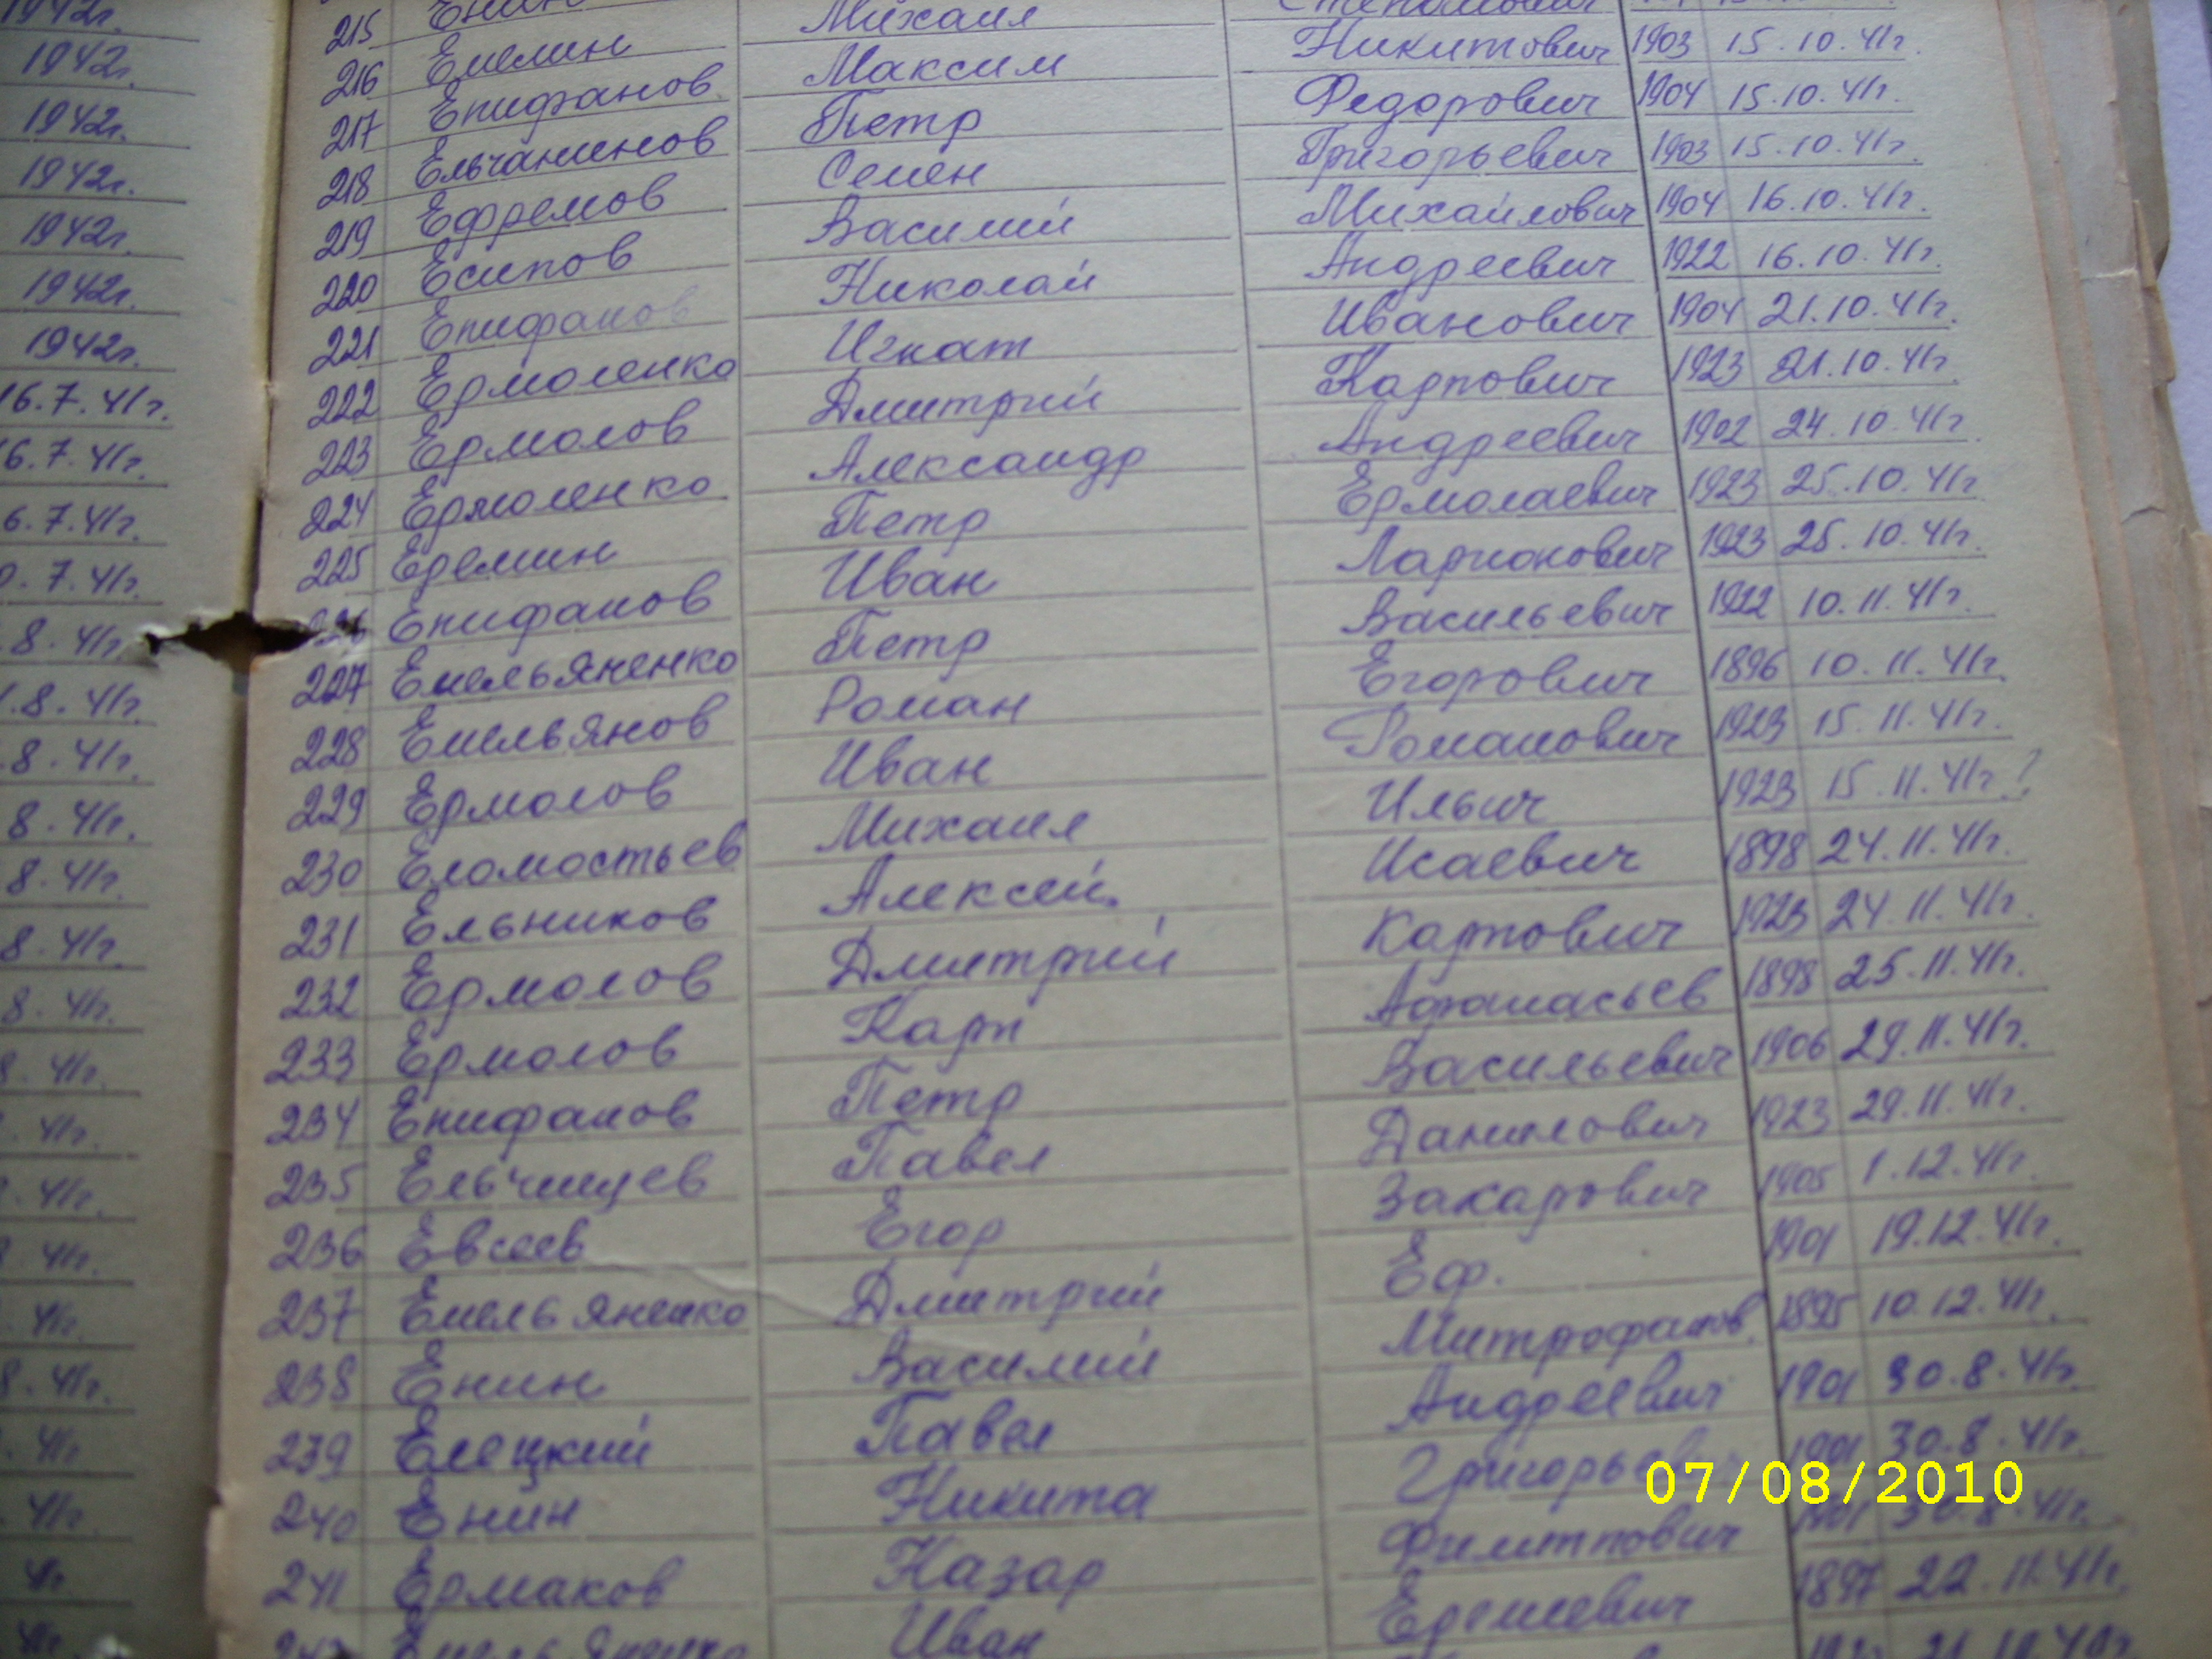 1942г.
1942г.
1942г.
1942г.
1942г.
1942г.
1942г.
16.7.41г.
6.7.41г.
6.7.41г.
7.41г.
8.41г.
8.41г.
8.41г.
8.41г.
8.41г.
8.41г.
8.41г.
8.41г.
41г.
41г.
41г.
41г.
8.41г.
41г.
41г.
41г.
41г.
215 Енин Михаил Степанович
216 Емелин Максим Никитович 1903 15.10.41г.
217 Епифанов Петр Федорович 1904 15.10.41г.
218 Ельчанинов Семен Григорьевич 1903 15.10.41г.
219 Ефремов Василий Михайлович 1904 16.10.41г.
220 Есипов Николай Андреевич 1922 16.10.41г.
221 Епифанов Игнат Иванович 1904 21.10.41г.
222 Ермоленко Дмитрий Карпович 1923 21.10.41г.
223 Ермолов Александр Андреевич 1902 24.10.41г.
224 Ермоленко Петр Ермолаевич 1923 25.10.41г.
225 Еремин Иван Ларионович 1923 25.10.41г.
226 Епифанов Петр Васильевич 1922 10.11.41г.
227 Емельяненко Роман Егорович 1896 10.11.41г.
228 Емельянов Иван Романович 1923 15.11.41г.
229 Ермолов Михаил Ильич 1923 15.11.41г.?
230 Еломостьев Алексей. Исаевич 1898 24.11.41г.
231 Ельников Дмитрий Карпович 1923 24.11.41г.
232 Ермолов Карп Афанасьев 1898 25.11.41г.
233 Ермолов Петр Васильевич 1906 29.11.41г.
234 Епифанов Павел Данилович 1923 29.11.41г.
235 Ельчищев Егор Захарович 1905 1.12.41г.
236 Евсеев Дмитрий Еф. 1901 19.12.41г.
237 Емельяненко Василий Митрофанов. 1895 10.12.41г.
238 Енин Павел Андреевич 1901 30.8.41г.
239 Елецкий Никита 1901 30.8.41г.
240 Енин Назар Филиппович 30.8.41г.
241 Ермаков Иван Еремеевич 1897 22.11.41г.
Емельяненко
07/08/2010